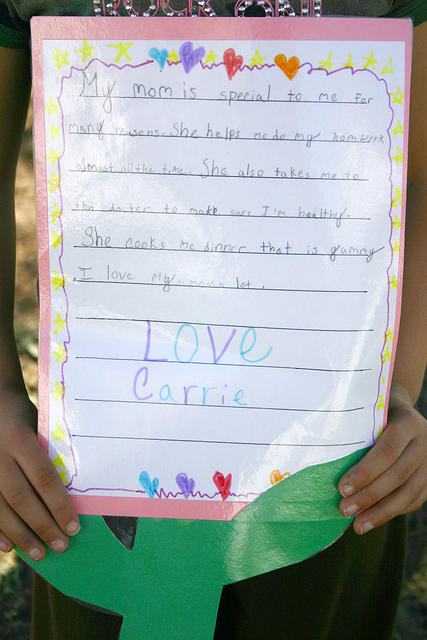 ROCK ON!
My mom is special to me for
many reasons. She helps me do my homwork
almost all the time. She also takes me to
the docter to make sure I'm healthy.
She cooks me dinner that is yummy
I love my mom a lot.
Love
Carrie